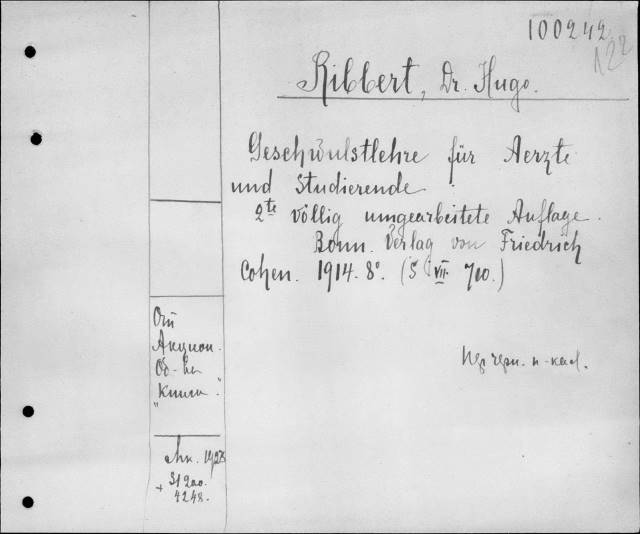 100242
122
Ribbert, Dr. Hugo.
Geschwulstlehre für Aerzte
und Studierende
2te völlig umgearbeitete Auflage.
Bonn. Verlag von Friedrich
Cohen. 1914. 8°. (S VII. 710.)
Від
Акцион.
Об-ва
"Книга".
1928
+ 3/200.
4248.